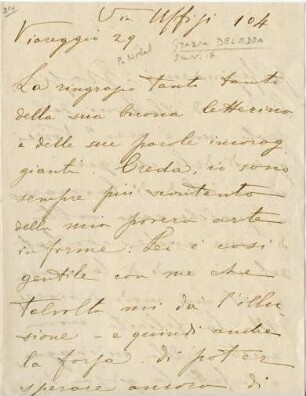 Via Uffizi 104
Viareggio 29
P. Nobel
Grazia DELEDDA
La ringrazio tanto tanto
della sua buona letterina
e delle sue parole incorag
gianti. Creda, io sono
sempre più scontenta
della mia povera arte
informe: Lei è così
gentile con me che
talvolta mi dà l'illu
sione - e quindi anche
la forza di poter
sperare ancora di